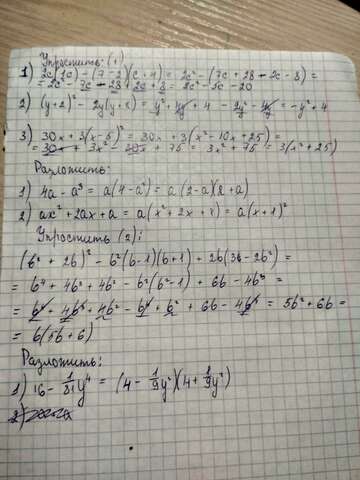 Упростить: (1)
1) 2c(1c) - (7-2)(c+4) = 2c² - (7c + 28 - 2c - 8) =
= 2c² - 7c - 28 + 2c + 8 = 2c² - 5c - 20
2) (y+2)² - 2y(y+2) = y² + 4y + 4 - 2y² - 4y = -y² + 4
3) 30x + 3(x-5)² = 30x + 3(x² - 10x + 25) =
= 30x + 3x² - 30x + 75 = 3x² + 75 = 3(x² + 25)
Разложить:
1) 4a - a³ = a(4 - a²) = a(2-a)(2+a)
2) ax² + 2ax + a = a(x² + 2x + 1) = a(x+1)²
Упростить (2):
(b² + 2b)² - b²(b-1)(b+1) + 2b(3b - 2b²) =
= b⁴ + 4b³ + 4b² - b²(b² - 1) + 6b - 4b³ =
= b⁴ + 4b³ + 4b² - b⁴ + b² + 6b - 4b³ = 5b² + 6b =
= b(5b + 6)
Разложить:
1) 16 - 1/81 y⁴ = (4 - 1/9 y²)(4 + 1/9 y²)
2)